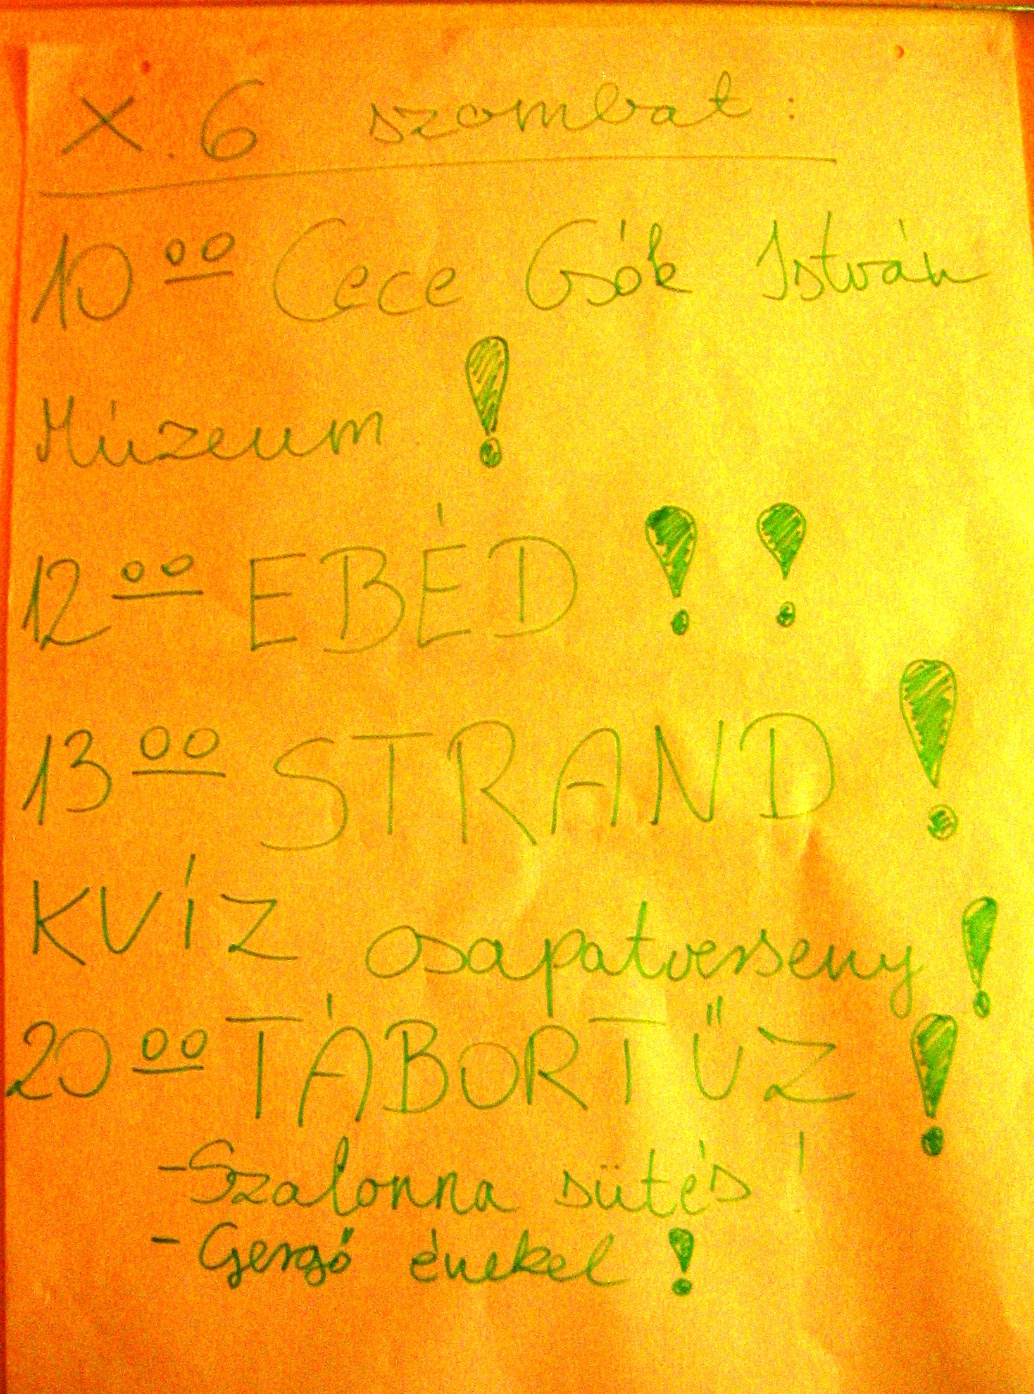 X. 6 szombat:
10 00 Cece Csók István
Múzeum!
12 00 EBÉD!!
13 00 STRAND!
KVÍZ csapatverseny!
20 00 TÁBORTŰZ!
-Szalonna sütés!
- Gergő énekel!